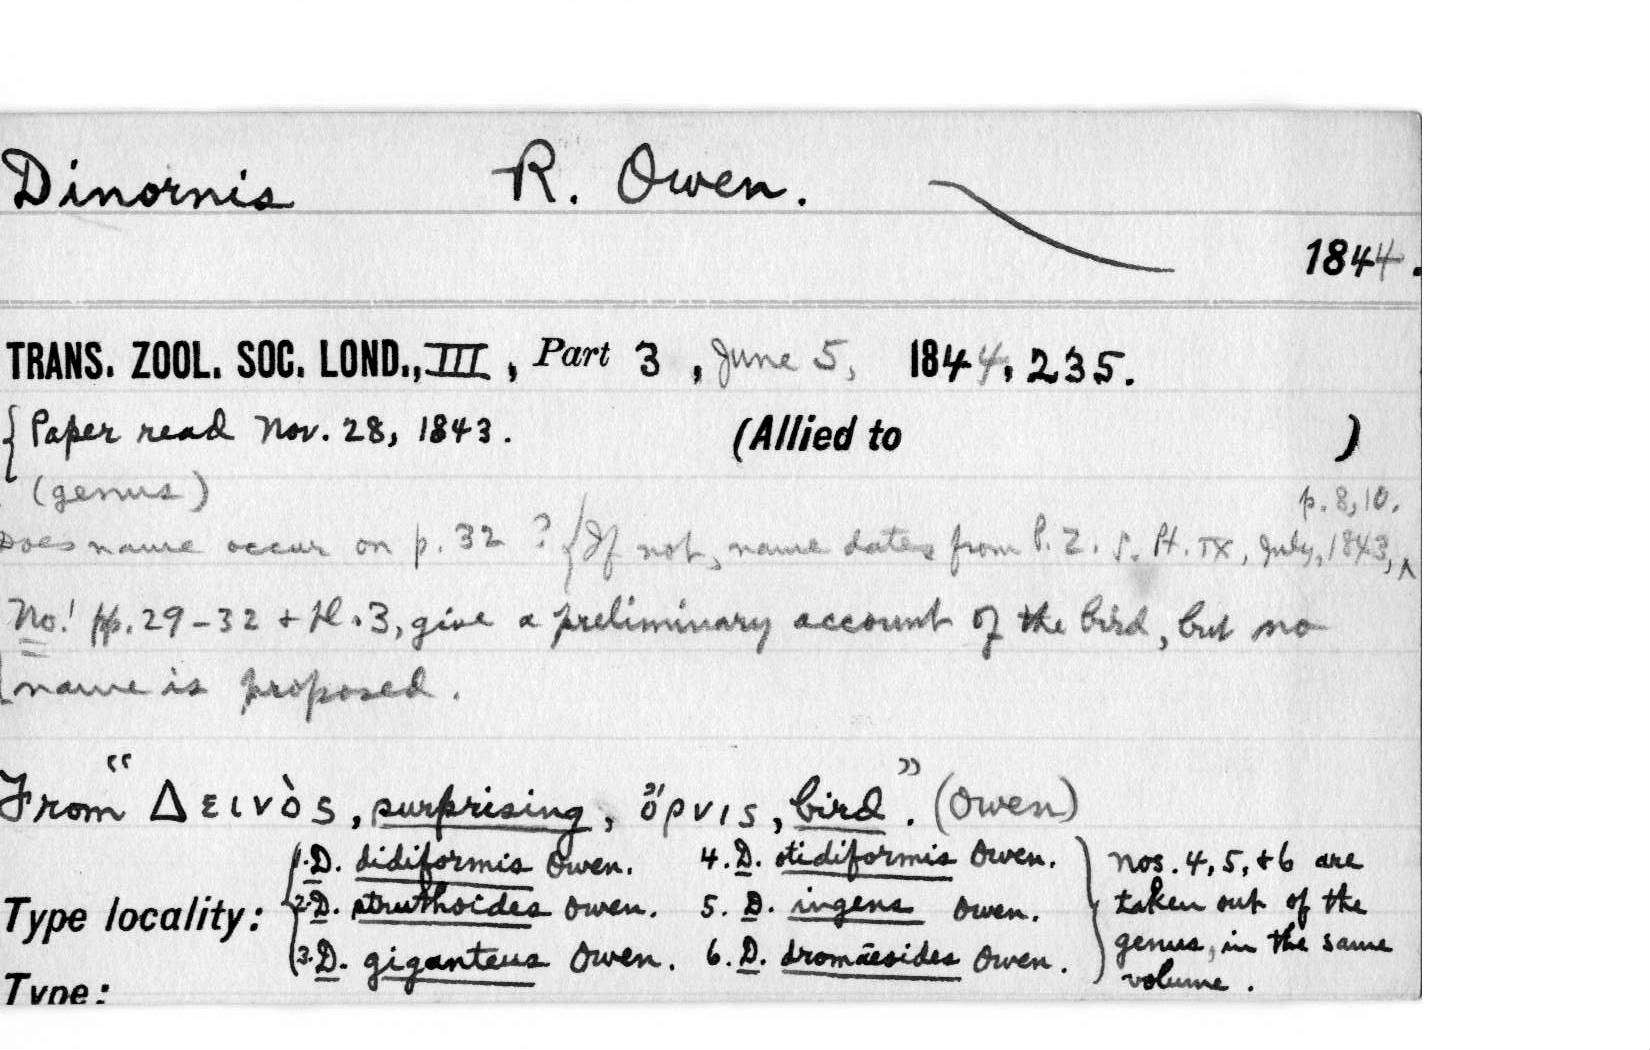 Dinornis R. Owen.
1844.
TRANS. ZOOL. SOC. LOND., III, Part 3, June 5, 1844, 235.
{Paper read Nov. 28, 1843. (Allied to )
(genus)
p. 8, 10.
Does name occur on p. 32? {If not, name dates from P. Z. S. Pt. IX, July, 1843, ^
No! pp. 29-32 + Pl. 3, give a preliminary account of the bird, but no
name is proposed.
From "Δεινὸς, surprising, ὄρνις, bird". (Owen)
1. D. didiformis Owen. 4. D. otidiformis Owen. } Nos. 4, 5, + 6 are
Type locality: 2. D. struthoides Owen. 5. D. ingens Owen. taken out of the
3. D. giganteus Owen. 6. D. dromæoides Owen. genus, in the same
volume.
Type: